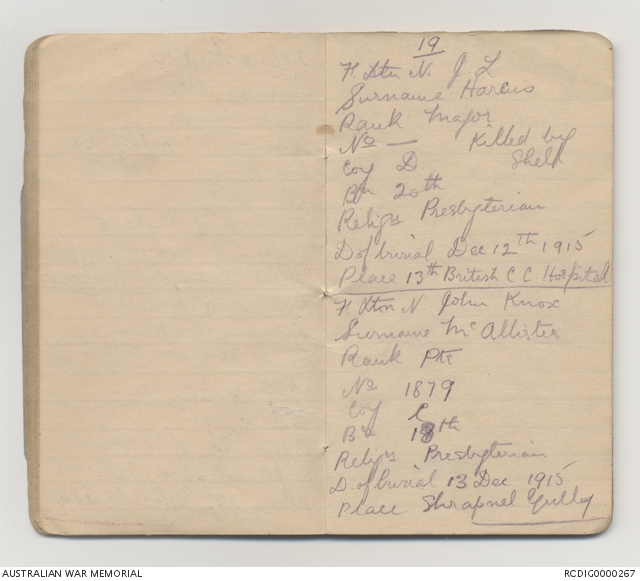 19
F. Xtn N. J L
Surname Harcus
Rank Major
No — Killed by Shell
Coy D.
Bn 20th
Religs Presbyterian
D of burial Dec 12th 1915
Place 13th British C C Hospital
F Xton N. John Knox
Surname McAllister
Rank Pte
No 1879
Coy C
Bn 18th
Religs Presbyterian
D. of burial 13 Dec 1915
Place Shrapnel Gulley
AUSTRALIAN WAR MEMORIAL
RCDIG0000267